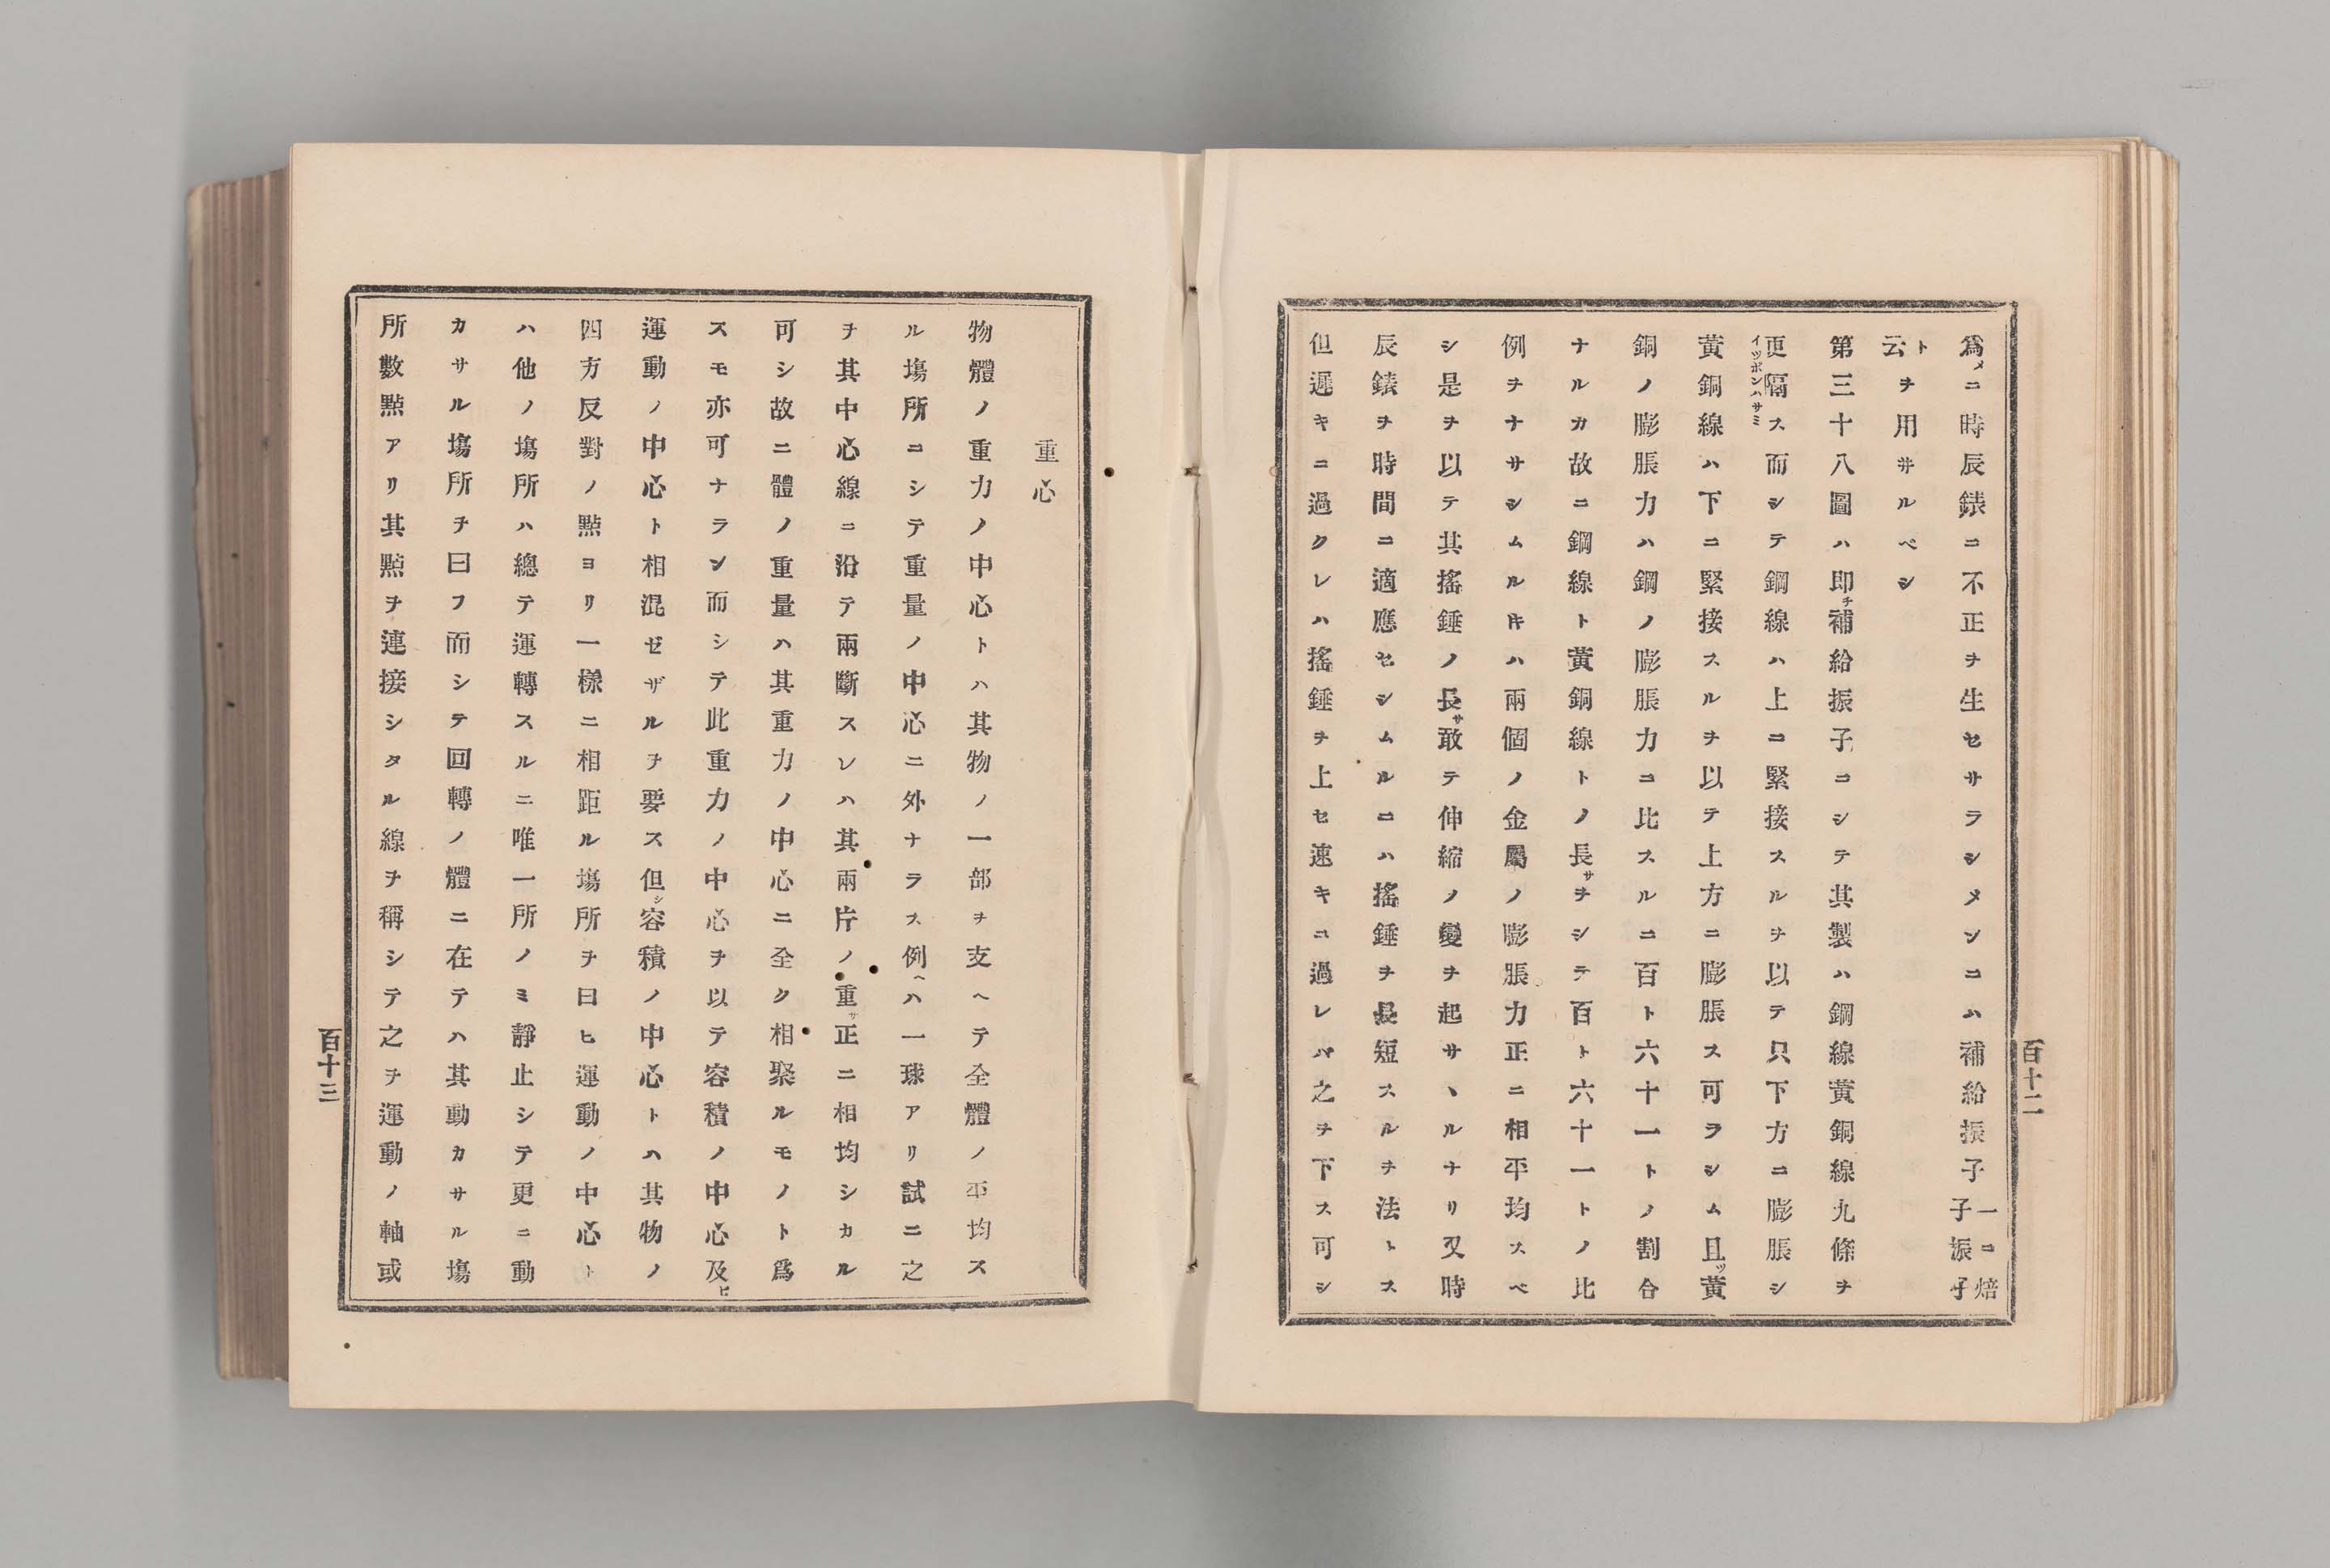 爲メニ時辰錶ニ不正ヲ生セサラシメンニハ補給振子一ニ焙子振子
ト云ヲ用井サルベシ
第三十八圖ハ即チ補給振子ニシテ其製ハ鋼線黃銅線九條ヲ
更隔スイツポンハサミ而シテ鋼線ハ上ニ緊接スルヲ以テ只下方ニ膨脹シ
黃銅線ハ下ニ緊接スルヲ以テ上方ニ膨脹ス可ラシム且ツ黃
銅ノ膨脹力ハ鋼ノ膨脹力ニ比スルニ百ト六十一トノ割合
ナルカ故ニ鋼線ト黃銅線トノ長サヲシテ百ト六十一トノ比
例ヲナサシムル𪜈ハ兩個ノ金屬ノ膨脹力正ニ相平均スベ
シ是ヲ以テ其搖錘ノ長サ敢テ伸縮ノ變ヲ起サヽルナリ又時
辰錶ヲ時間ニ適應セシムルニハ搖錘ヲ長短スルヲ法トス
但遲キニ過クレハ搖錘ヲ上セ速キニ過レハ之ヲ下ス可シ
百十二
重心
物體ノ重力ノ中心トハ其物ノ一部ヲ支ヘテ全體ノ平均ス
ル塲所ニシテ重量ノ中心ニ外ナラス例ヘハ一球アリ試ニ之
ヲ其中心線ニ沿テ兩斷スレハ其兩片ノ重サ正ニ相均シカル
可シ故ニ體ノ重量ハ其重力ノ中心ニ全ク相聚ルモノト爲
スモ亦可ナラン而シテ此重力ノ中心ヲ以テ容積ノ中心及ヒ
運動ノ中心ト相混ゼザルヲ要ス但シ容積ノ中心トハ其物ノ
四方反對ノ點ヨリ一樣ニ相距ル塲所ヲ曰ヒ運動ノ中心ト
ハ他ノ塲所ハ總テ運轉スルニ唯一所ノミ靜止シテ更ニ動
カサル塲所ヲ曰フ而シテ回轉ノ體ニ在テハ其動カサル塲
所數點アリ其點ヲ連接シタル線ヲ稱シテ之ヲ運動ノ軸或
百十三